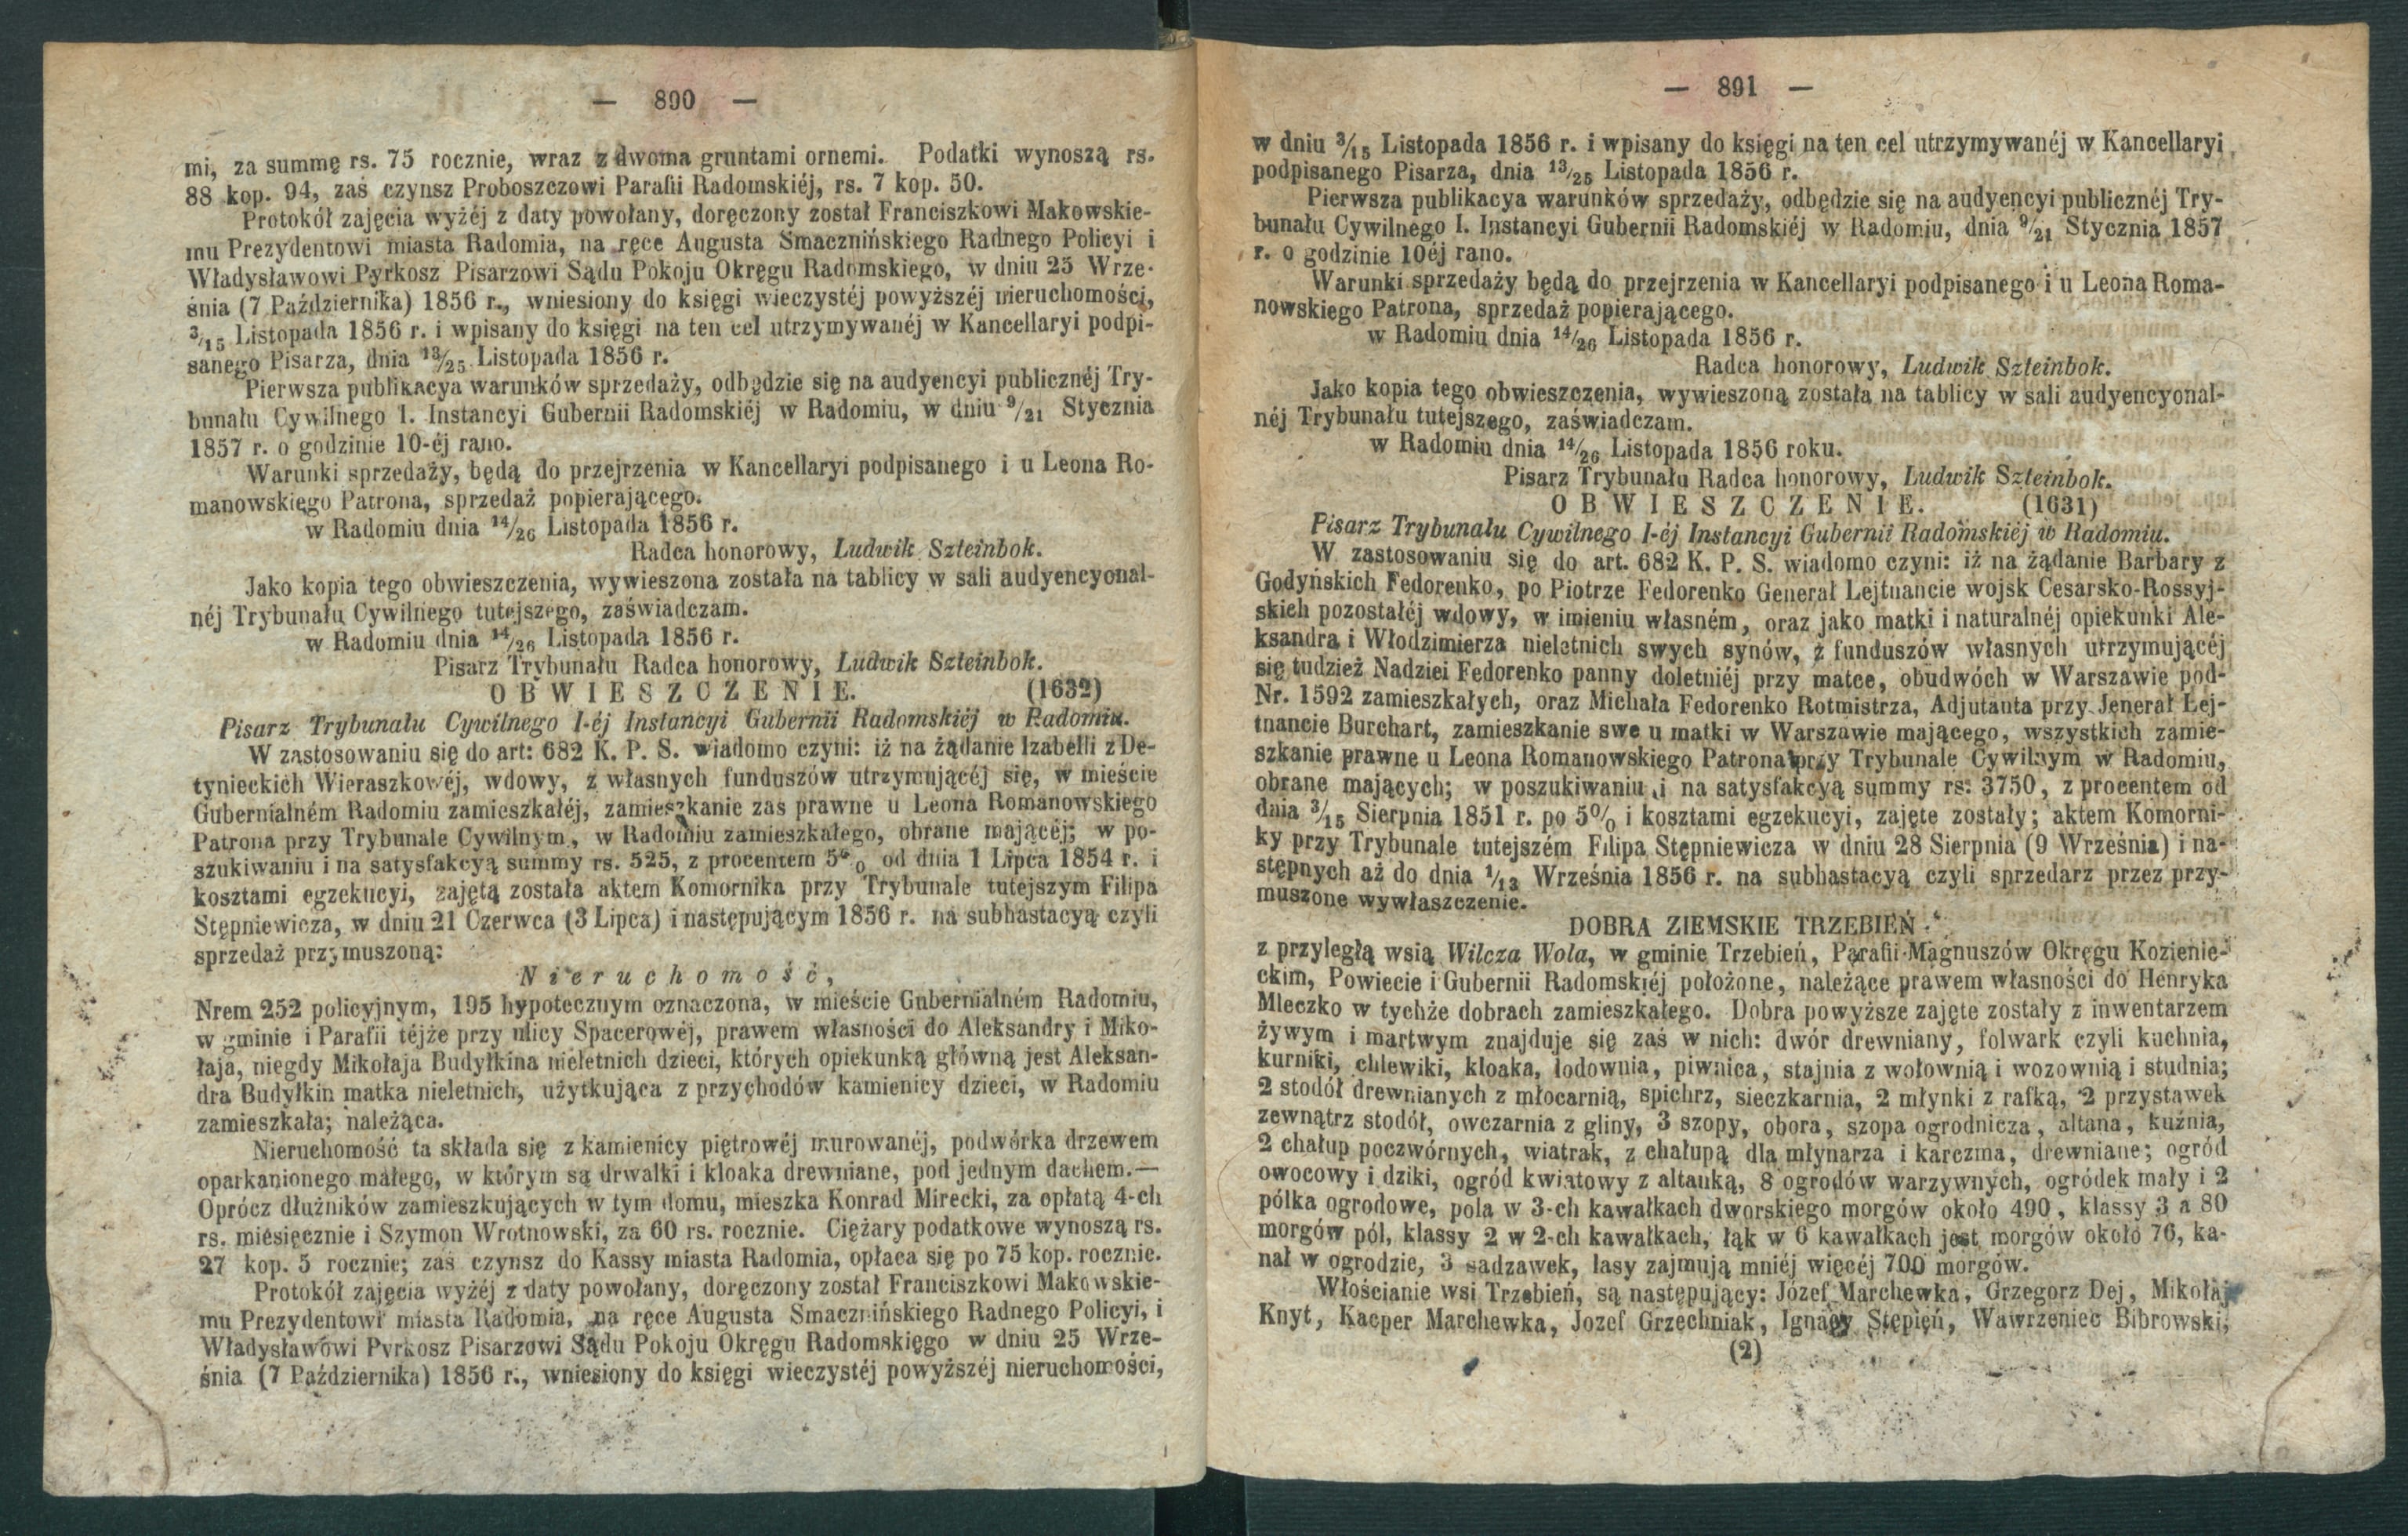 — 890 —
mi, za summę rs. 75 rocznie, wraz z dwoma gruntami ornemi. Podatki wynoszą rs.
88 kop. 94, zaś czynsz Proboszczowi Parafii Radomskiéj, rs. 7 kop. 50.
Protokół zajęcia wyżéj z daty powołany, doręczony został Franciszkowi Makowskie-
mu Prezydentowi miasta Radomia, na ręce Augusta Smacznińskiego Radnego Policyi i
Władysławowi Pyrkosz Pisarzowi Sądu Pokoju Okręgu Radomskiego, w dniu 25 Wrze-
śnia (7 Października) 1856 r., wniesiony do księgi wieczystéj powyższéj nieruchomości,
3/15 Listopada 1856 r. i wpisany do księgi na ten cel utrzymywanéj w Kancellaryi podpi-
sanego Pisarza, dnia 13/25 Listopada 1856 r.
Pierwsza publikacya warunków sprzedaży, odbędzie się na audyencyi publicznéj Try-
bunału Cywilnego I. Instancyi Gubernii Radomskiéj w Radomiu, w dniu 9/21 Stycznia
1857 r. o godzinie 10-éj rano.
Warunki sprzedaży, będą do przejrzenia w Kancellaryi podpisanego i u Leona Ro-
manowskięgo Patrona, sprzedaż popierającego.
w Radomiu dnia 14/26 Listopada 1856 r.
Radca honorowy, Ludwik Szteinbok.
Jako kopia tego obwieszczenia, wywieszona została na tablicy w sali audyencyonal-
néj Trybunału Cywilnego tutejszego, zaświadczam.
w Radomiu dnia 14/26 Listopada 1856 r.
Pisarz Trybunału Radca honorowy, Ludwik Szteinbok.
OBWIESZCZENIE. (1632)
Pisarz Trybunału Cywilnego I-éj Instancyi Gubernii Radomskiéj w Radomiu.
W zastosowaniu się do art: 682 K. P. S. wiadomo czyni: iż na żądanie Izabelli z De-
tynieckich Wieraszkowéj, wdowy, z własnych funduszów utrzymującéj się, w mieście
Gubernialném Radomiu zamieszkałéj, zamieszkanie zaś prawne u Leona Romanowskiego
Patrona przy Trybunale Cywilnym, w Radomiu zamieszkałego, obrane mającéj; w po-
szukiwaniu i na satysfakcyą summy rs. 525, z procentem 5% od dnia 1 Lipca 1854 r. i
kosztami egzekucyi, zajętą została aktem Komornika przy Trybunale tutejszym Filipa
Stępniewicza, w dniu 21 Czerwca (3 Lipca) i następującym 1856 r. na subhastacyą czyli
sprzedaż przymuszoną:
Nieruchomość,
Nrem 252 policyjnym, 195 hypotecznym oznaczona, w mieście Gubernialném Radomiu,
w gminie i Parafii téjże przy ulicy Spacerowéj, prawem własności do Aleksandry i Miko-
łaja, niegdy Mikołaja Budyłkina nieletnich dzieci, których opiekunką główną jest Aleksan-
dra Budyłkin matka nieletnich, użytkująca z przychodów kamienicy dzieci, w Radomiu
zamieszkała; należąca.
Nieruchomość ta składa się z kamienicy piętrowéj murowanéj, podwórka drzewem
oparkanionego małego, w którym są drwalki i kloaka drewniane, pod jednym dachem.—
Oprócz dłużników zamieszkujących w tym domu, mieszka Konrad Mirecki, za opłatą 4-ch
rs. miesięcznie i Szymon Wrotnowski, za 60 rs. rocznie. Ciężary podatkowe wynoszą rs.
27 kop. 5 rocznie; zaś czynsz do Kassy miasta Radomia, opłaca się po 75 kop. rocznie.
Protokół zajęcia wyżéj z daty powołany, doręczony został Franciszkowi Makowskie-
mu Prezydentowi miasta Radomia, na ręce Augusta Smacznińskiego Radnego Policyi, i
Władysławowi Pyrkosz Pisarzowi Sądu Pokoju Okręgu Radomskięgo w dniu 25 Wrze-
śnia (7 Października) 1856 r., wniesiony do księgi wieczystéj powyższéj nieruchomości,
— 891 —
w dniu 3/15 Listopada 1856 r. i wpisany do księgi na ten cel utrzymywanéj w Kancellaryi
podpisanego Pisarza, dnia 13/25 Listopada 1856 r.
Pierwsza publikacya warunków sprzedaży, odbędzie się na audyencyi publicznéj Try-
bunału Cywilnego I. Instancyi Gubernii Radomskiéj w Radomiu, dnia 9/21 Stycznia 1857
r. o godzinie 10éj rano.
Warunki sprzedaży będą do przejrzenia w Kancellaryi podpisanego i u Leona Roma-
nowskięgo Patrona, sprzedaż popierającego.
w Radomiu dnia 14/26 Listopada 1856 r.
Radca honorowy, Ludwik Szteinbok.
Jako kopia tego obwieszczenia, wywieszoną została na tablicy w sali audyencyonal-
néj Trybunału tutejszego, zaświadczam.
w Radomiu dnia 14/26 Listopada 1856 roku.
Pisarz Trybunału Radca honorowy, Ludwik Szteinbok.
OBWIESZCZENIE. (1631)
Pisarz Trybunału Cywilnego I-éj Instancyi Gubernii Radomskiéj w Radomiu.
W zastosowaniu się do art. 682 K. P. S. wiadomo czyni: iż na żądanie Barbary z
Godyńskich Fedorenko, po Piotrze Fedorenko Generał Lejtnancie wojsk Cesarsko-Rossyj-
skich pozostałéj wdowy, w imieniu własném, oraz jako matki i naturalnéj opiekunki Ale-
ksandra i Włodzimierza nieletnich swych synów, z funduszów własnych utrzymującéj
się tudzież Nadziei Fedorenko panny doletniéj przy matce, obudwóch w Warszawie pod-
Nr. 1592 zamieszkałych, oraz Michała Fedorenko Rotmistrza, Adjutanta przy Jenerał Lej-
tnancie Burchart, zamieszkanie swe u matki w Warszawie mającego, wszystkich zamie-
szkanie prawne u Leona Romanowskiego Patrona przy Trybunale Cywilnym w Radomiu,
obrane mających; w poszukiwaniu i na satysfakcyą summy rs: 3750, z procentem od
dnia 3/15 Sierpnia 1851 r. po 5% i kosztami egzekucyi, zajęte zostały; aktem Komorni-
ky przy Trybunale tutejszém Filipa Stępniewicza w dniu 28 Sierpnia (9 Września) i na-
stępnych aż do dnia 1/13 Września 1856 r. na subhastacyą czyli sprzedarz przez przy-
muszone wywłaszczenie.
DOBRA ZIEMSKIE TRZEBIEŃ
z przyległą wsią Wilcza Wola, w gminie Trzebień, Parafii Magnuszów Okręgu Kozienie-
ckim, Powiecie i Gubernii Radomskiéj położone, należące prawem własności do Henryka
Mleczko w tychże dobrach zamieszkałego. Dobra powyższe zajęte zostały z inwentarzem
żywym i martwym znajduje się zaś w nich: dwór drewniany, folwark czyli kuchnia,
kurniki, chlewiki, kloaka, lodownia, piwnica, stajnia z wołownią i wozownią i studnia;
2 stodół drewnianych z młocarnią, spichrz, sieczkarnia, 2 młynki z rafką, 2 przystawek
zewnątrz stodół, owczarnia z gliny, 3 szopy, obora, szopa ogrodnicza, altana, kuźnia,
2 chałup poczwórnych, wiatrak, z chałupą dla młynarza i karczma, drewniane; ogród
owocowy i dziki, ogród kwiatowy z altanką, 8 ogrodów warzywnych, ogródek mały i 2
pólka ogrodowe, pola w 3-ch kawałkach dworskiego morgów około 490, klassy 3 a 80
morgów pól, klassy 2 w 2-ch kawałkach, łąk w 6 kawałkach jest morgów około 76, ka-
nał w ogrodzie, 3 sadzawek, lasy zajmują mniéj więcéj 700 morgów.
Włościanie wsi Trzebień, są następujący: Józef Marchewka, Grzegorz Dej, Mikołaj
Knyt, Kacper Marchewka, Jozef Grzechniak, Ignacy Stępień, Wawrzeniec Bibrowski,
(2)